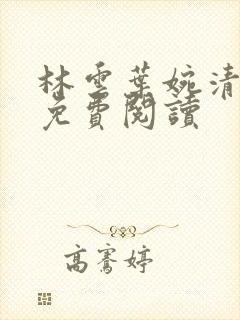 林雲葉婉清
免費閱讀
高騫婷